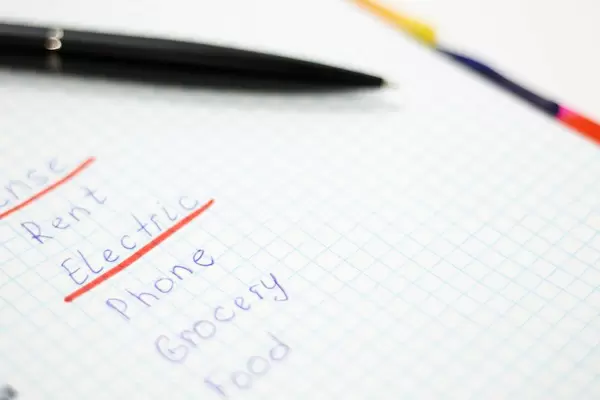 Rent
Electric
Phone
Grocery
Food